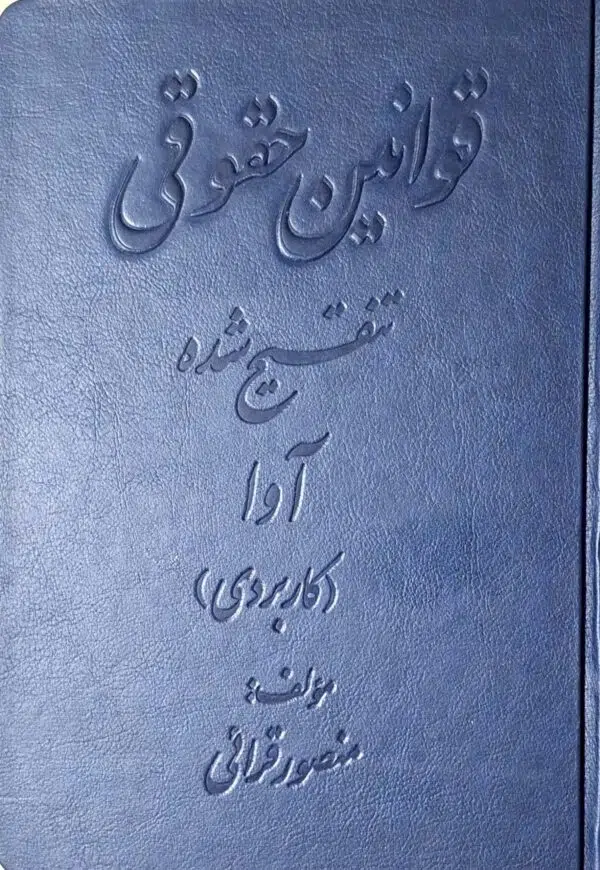 قوانین حقوقی
تنقیح شده
آوا
(کاربردی)
مؤلف:
منصور قرائی